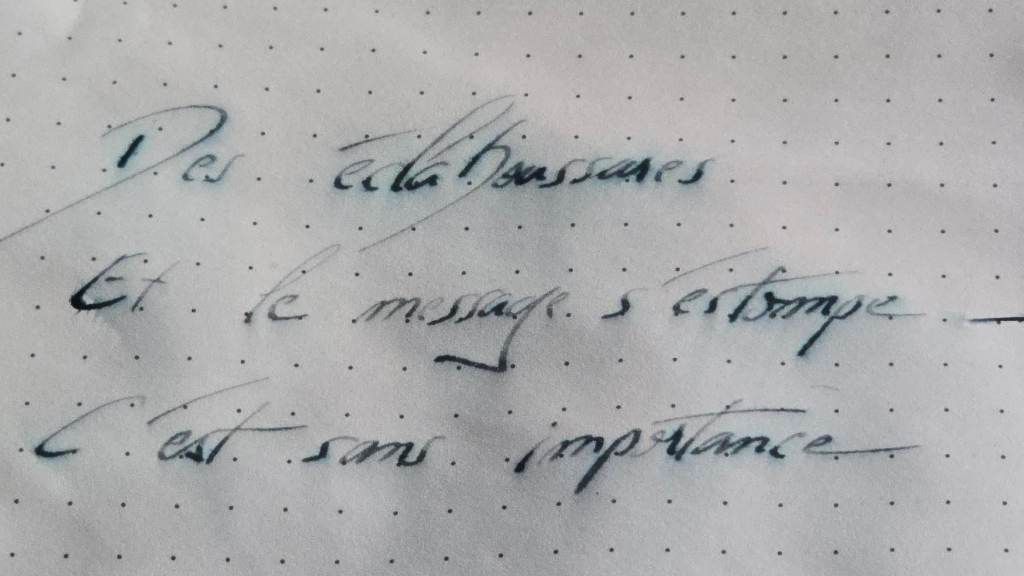 Des éclaboussures
Et le message s'estompe —
C'est sans importance